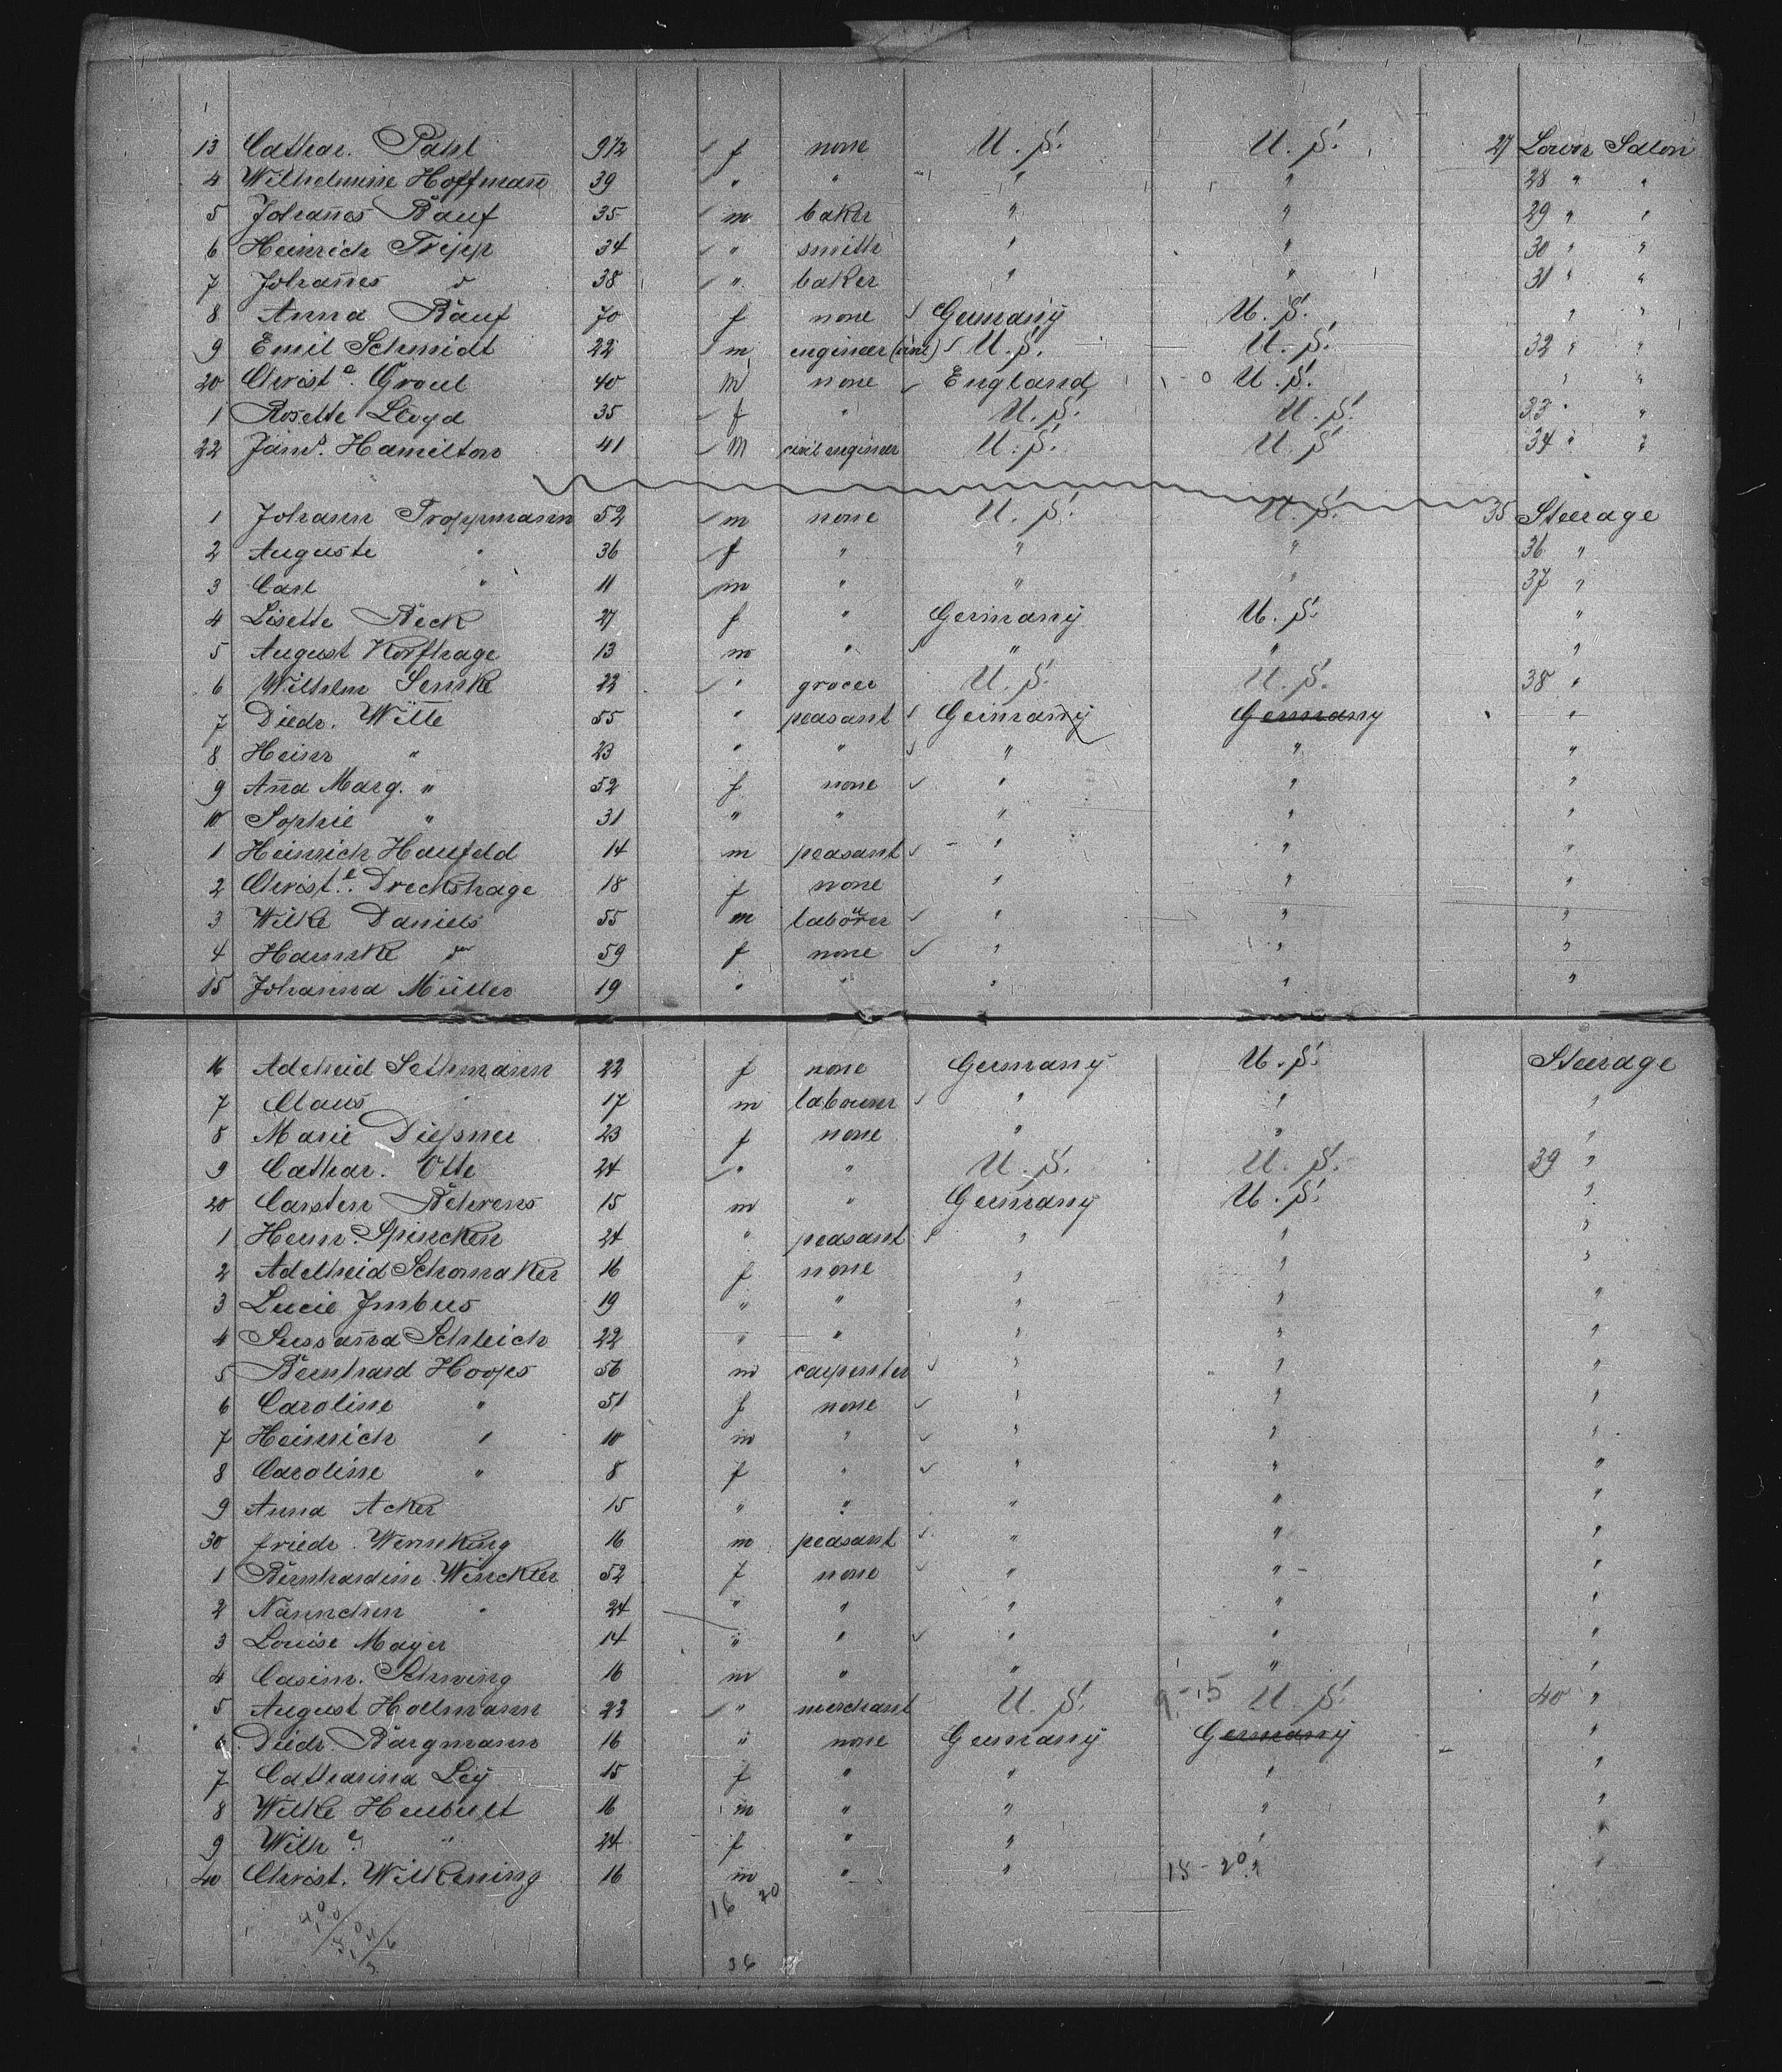 13 Cathar. Pahl 9 1/2 f none U.S. U.S. 27 Lower Saloon
4 Wilhelmine Hoffman̄ 39 " " " " 28 " "
5 Johan̄es Bauf 35 m baker " " 29 " "
6 Heinrich Tripp 34 " smith " " 30 " "
7 Johan̄es d 38 " baker " " 31 " "
8 Anna Bauf 70 f none Germany U.S. " "
9 Emil Schmidt 22 m engineer U.S. U.S. 32 " "
20 Christ e. Graul 40 m none England U.S. " "
1 Rosette Lloyd 35 f " U.S. U.S. 33 " "
22 Jam s. Hamilton 41 m civil engineer U.S. U.S. 34 " "
1 Johann Troppmann 52 m none U.S. U.S. 35 Steerage
2 Auguste " 36 f " " " 36 "
3 Carl " 11 m " " " 37 "
4 Lisette Beck 27 f " Germany U.S. "
5 August Korfhage 13 m " " " "
6 Wilhelm Lemke 22 " grocer U.S. U.S. 38 "
7 Diedr. Witte 55 " peasant Germany Germany "
8 Heinr " 23 " " " " "
9 An̄a Marg. " 52 f none " " "
10 Sophie " 31 " " " " "
1 Heinrich Haufeld 14 m peasant " " "
2 Christ e. Dreckshage 18 f none " " "
3 Wilke Daniels 55 m labourer " " "
4 Hamke d 59 f none " " "
15 Johanna Müller 19 " " " " "
16 Adelheid Sethmann 22 f none Germany U.S. Steerage
7 Claus " 17 m labourer " " "
8 Marie Dießner 23 f none " " "
9 Cathar. Otte 24 " " U.S. U.S. 39 "
20 Carsten Behrens 15 m " Germany U.S. "
1 Herm. Spincken 24 " peasant " " "
2 Adelheid Schomaker 16 f none " " "
3 Lucie Imbus 19 " " " " "
4 Susan̄a Schleich 22 " " " " "
5 Bernhard Hoops 56 m carpenter " " "
6 Caroline " 51 f none " " "
7 Heinrich " 10 m " " " "
8 Caroline " 8 f " " " "
9 Anna Acker 15 " " " " "
30 Friedr. Werneking 16 m peasant " " "
1 Bernhardine Winckler 52 f none " " "
2 Nannchen " 24 " " " " "
3 Louise Mayer 14 " " " " "
4 Casim. Schwing 16 m " " " "
5 August Hollmann 22 " merchant U.S. 9-15 U.S. 40 "
6 Diedr. Bargmann 16 " none Germany Germany "
7 Catharina Ley 15 f " " " "
8 Wilke Heubült 16 m " " " "
9 Wilh e. " 24 f " " " "
40 Christ. Wilkening 16 m " " 15-20 " "
16 20
36